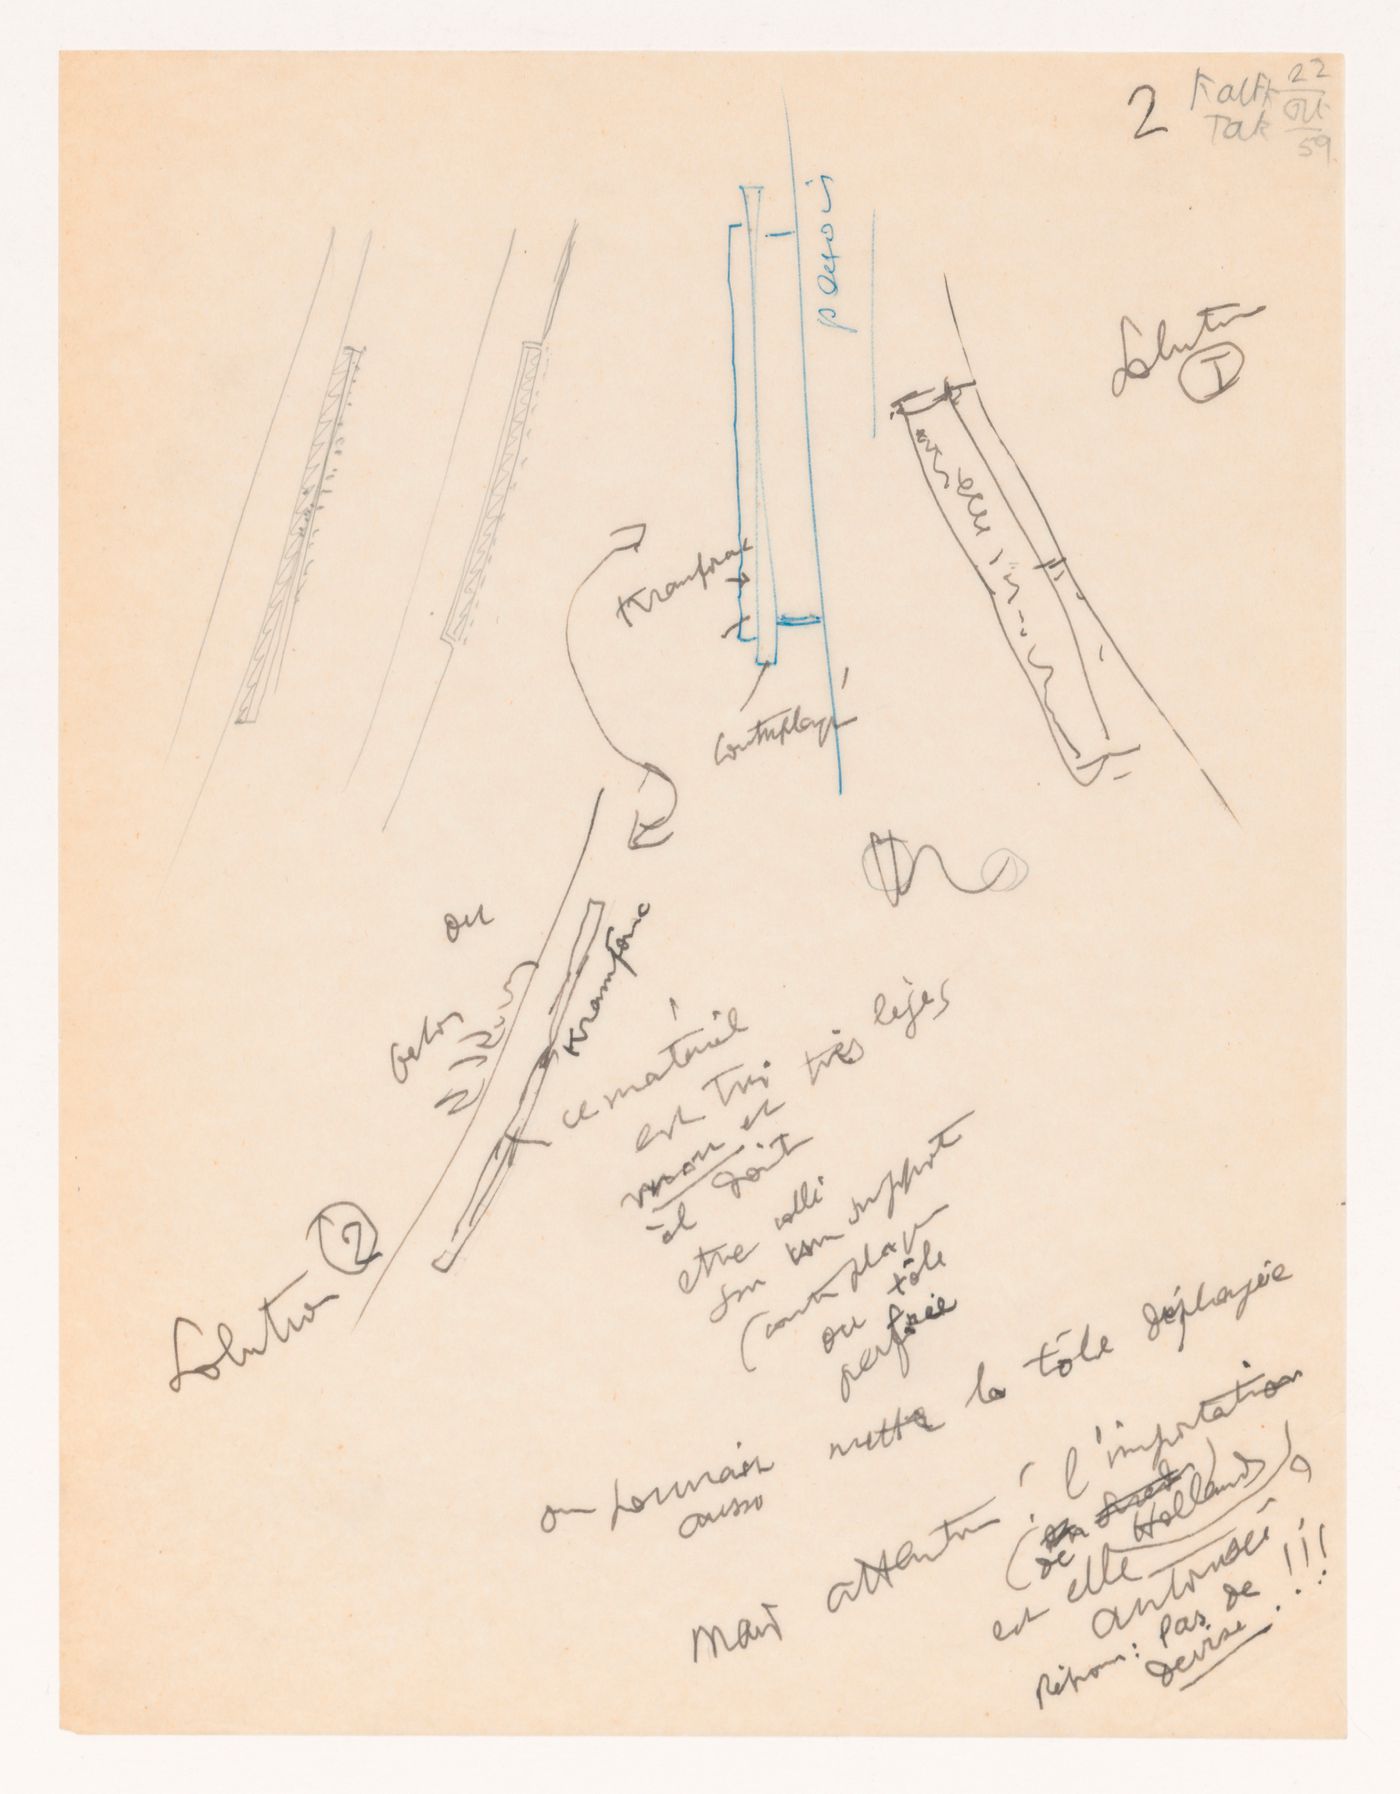 2
22
59
Solution
1
Kramfonac
Contreplaqué
ou
beton
Kramfonac
ce matériel
est très
mou et très léger
il doit
etre collé
sur son support
(contreplaqué
ou tôle
perforée
Solution 2
on pourrait mettre la tôle déployée
aussi
mais attention! l'importation
(de Hollande)
est elle
autorisée?
Réponse: Pas de
devise!!!